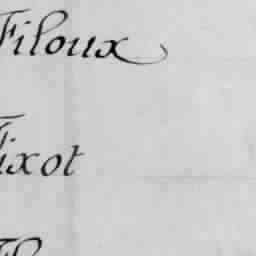 Filoux
Fixot